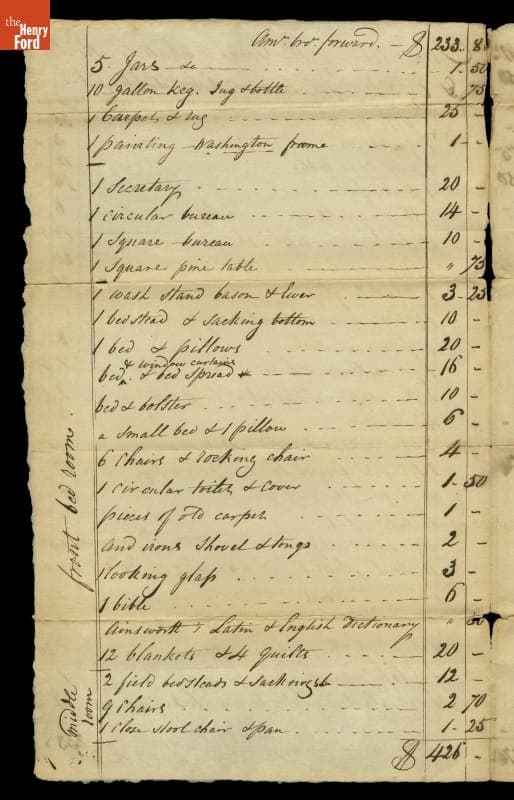 the
Henry
Ford
Amt. bro. forward. - $ 233. 8
5 Jars &c 1. 50
10 gallon keg. Jug & bottle 75
1 Carpet & rug 25 -
1 painting Washington frame 1 -
1 Secretary 20 -
1 circular bureau 14 -
1 Square bureau 10 -
1 Square pine table " 75
1 wash stand bason & Ewer 3. 25
1 bedstead & sacking bottom 10 -
1 bed & pillows 20 -
& window curtains
bed & bed spread 16 -
bed & bolster 10 -
a small bed & 1 pillow 6 -
6 Chairs & rocking chair 4 -
1 circular toilet & cover 1. 50
pieces of old carpet 1 -
And irons Shovel & tongs 2 -
1 looking glass 3 -
1 bible 6 -
Ainsworth's Latin & English Dictionary " 50
12 blankets & 4 quilts 20 -
2 field bedsteads & sackings 12 -
9 Chairs 2 70
1 Close stool chair & pan 1. 25
$ 426 -
front bed room.
middle
room